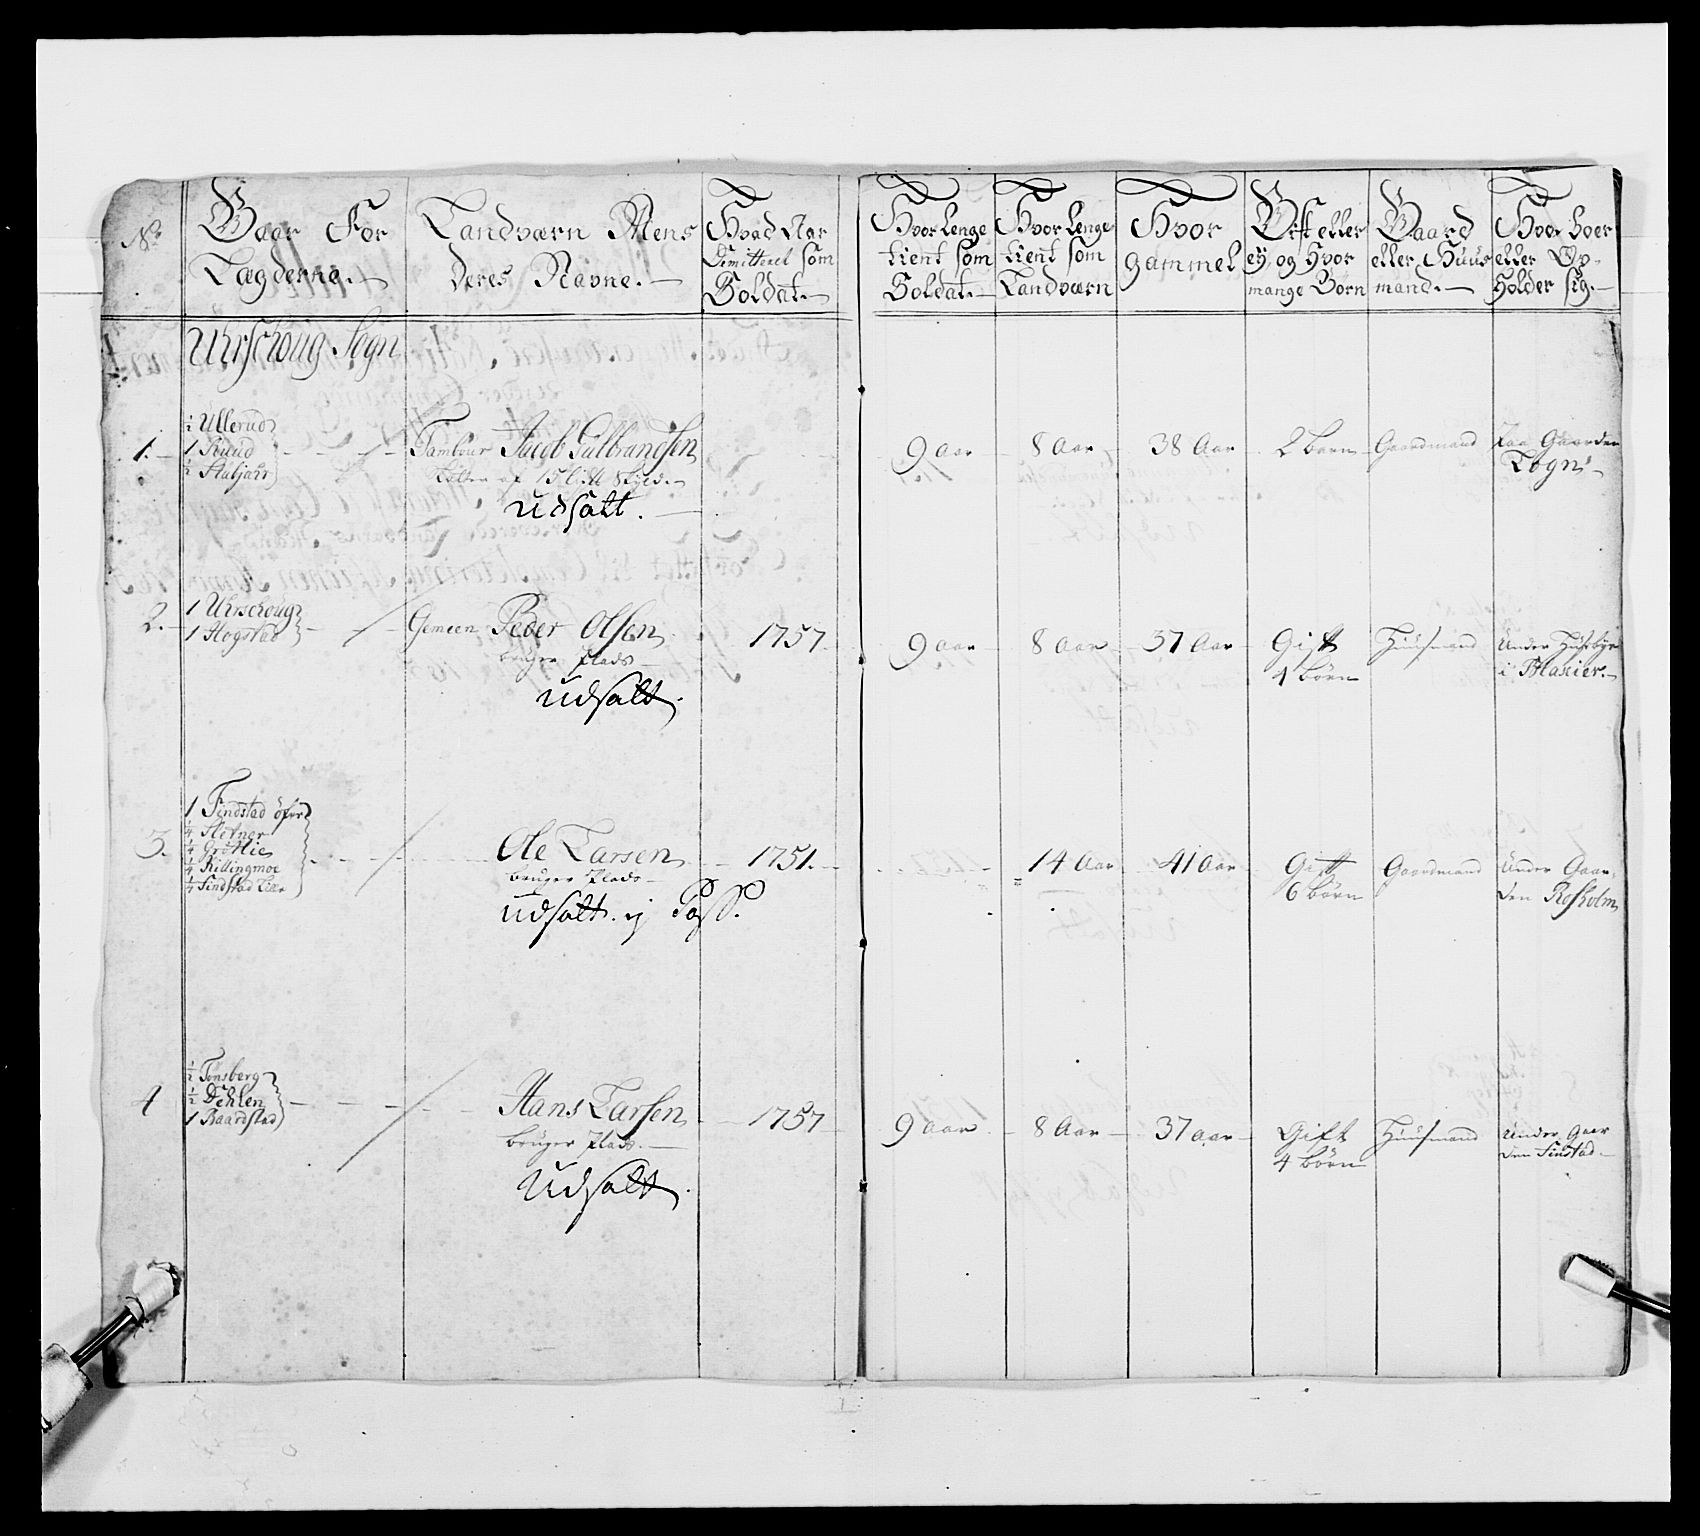 No
Gaar For
Lægderne.
Landværn Mens
Deres Navne.
Hvad Aar
Dimitteret som
Soldat.
Hvor Lenge
tient som
Soldat.
Hvor Lenge
tient som
Landværn
Hvor
gammel
Gift eller
ej, og Hvor
mange Børn
Gaard
eller Huus
mand.
Hvor boer
eller Op-
Holder sig.
Uhrschoug Sogn
1.
½ Ullerud
1 Ruud
Tambour Jacob Gulbrandsen
udsatt.
9 aar
8 Aar
38 Aar
2 børn
Gaardmand
Paa Gaarden
2.
1 Uhrschoug
1 Hogstad
Gemeen Peder Olsen
bruger Plads
udsatt.
1757
9 aar
8 Aar
37 Aar
Gift
4 børn
Huusmand
Under
i
3.
1 Findstad øfre
¼ Sletner
¼ Grøtlie
¼ Killingmoe
¼ Findstad Lille
Ole Larsen
bruger Plads
udsatt. ej Pass.
1751.
14 Aar
41 Aar
Gift
6 børn
Gaardmand
Under Gaar-
den Rosholm
4
½ Tønsberg
½ Dehlen
1 Baardstad
Hans Larsen
bruger Plads.
Udsatt.
1757
9 aar
8 Aar
37 aar
Gift
4 børn
Huusmand
Under Gaar
den Finstad